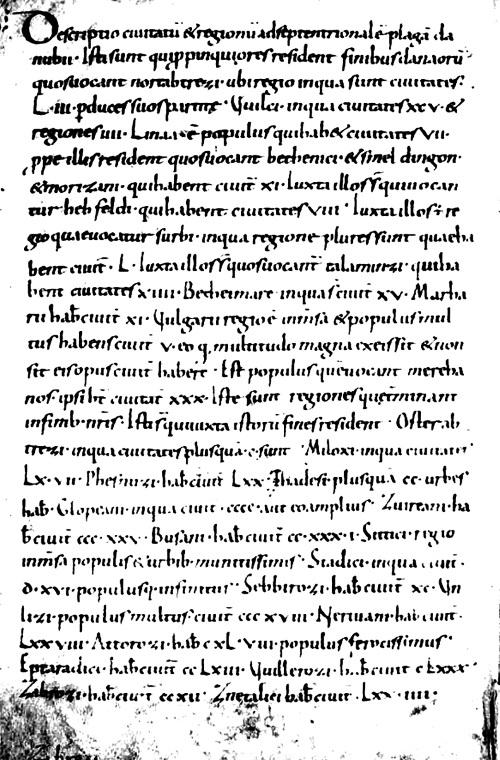 Descriptio civitatū & regionū ad septentrionalē plagā da
nubii. Isti sunt qui ppinquiores resident finibus danaorū
quos uocant nortabtrezi. ubi regio in qua sunt ciuitates.
L.iii. p duces suos partite. Uuilci. in qua ciuitates xcv. &
regiones iiii. Linaa. ē populus qui hab& ciuitates vii.
ppe illis resident quos uocant bethenici. & smeldingon.
& morizani. qui habent ciuiť xi. Iuxta illos s̄ qui uocan
tur hehfeldi. qui habent ciuitates viii. Iuxta illos ē re
gio quae uocatur surbi. in qua regione plures sunt quae ha
bent ciuiť. L. Iuxta illos s̄ quos uocant talaminzi. qui ha
bent ciuitates xiiii. Becheimare in qua s̄ ciuiť xv. Marha
rii hab̄ ciuiť xi. Uulgarii regio ē inm̄sa & populus mul
tus habens ciuiť v. eo q multitudo magna ex eis sit & non
sit eis opus ciuiť habere. Est populus quē uocant mereha
nos. ipsi hn̄t ciuitať xxx. Iste sunt regiones que t̄minant
in finib. nr̄is. Isti s̄ qui iuxta istorū fines resident. Osterab
trezi. in qua ciuitates plus quā .c. sunt. Miloxi. in qua ciuitates
Lx.vii. Phesnuzi. hab̄ ciuiť Lxx. Thadesi. plus quā cc. urbes
hab̄. Glopeani. in qua ciuiť. cccc. aut eo amplius. Zuireani. ha
b̄ ciuiť ccc.xxv. Busani. hab̄ ciuiť cc.xxx.i. Sittici. regio
inm̄sa populis & urbib. munitissimis. Stadici. in qua ciuiť.
d.xvi. populusq. infinitus. Sebbirozi. hab̄ ciuiť xc. Un
lizi. populus multus. ciuiť ccc xviii. Neriuani. hab̄ ciuiť.
Lxxviii. Attorozi. hab̄ c xL.viii. populus ferocissimus.
Eptaradici. hab̄ ciuiť cc Lxiii. Uuillerozi. hab̄ ciuiť c Lxxx.
Zabrozi. hab̄ ciuiť cc xii. Znetalici hab̄ ciuiť. Lxx.iiii.